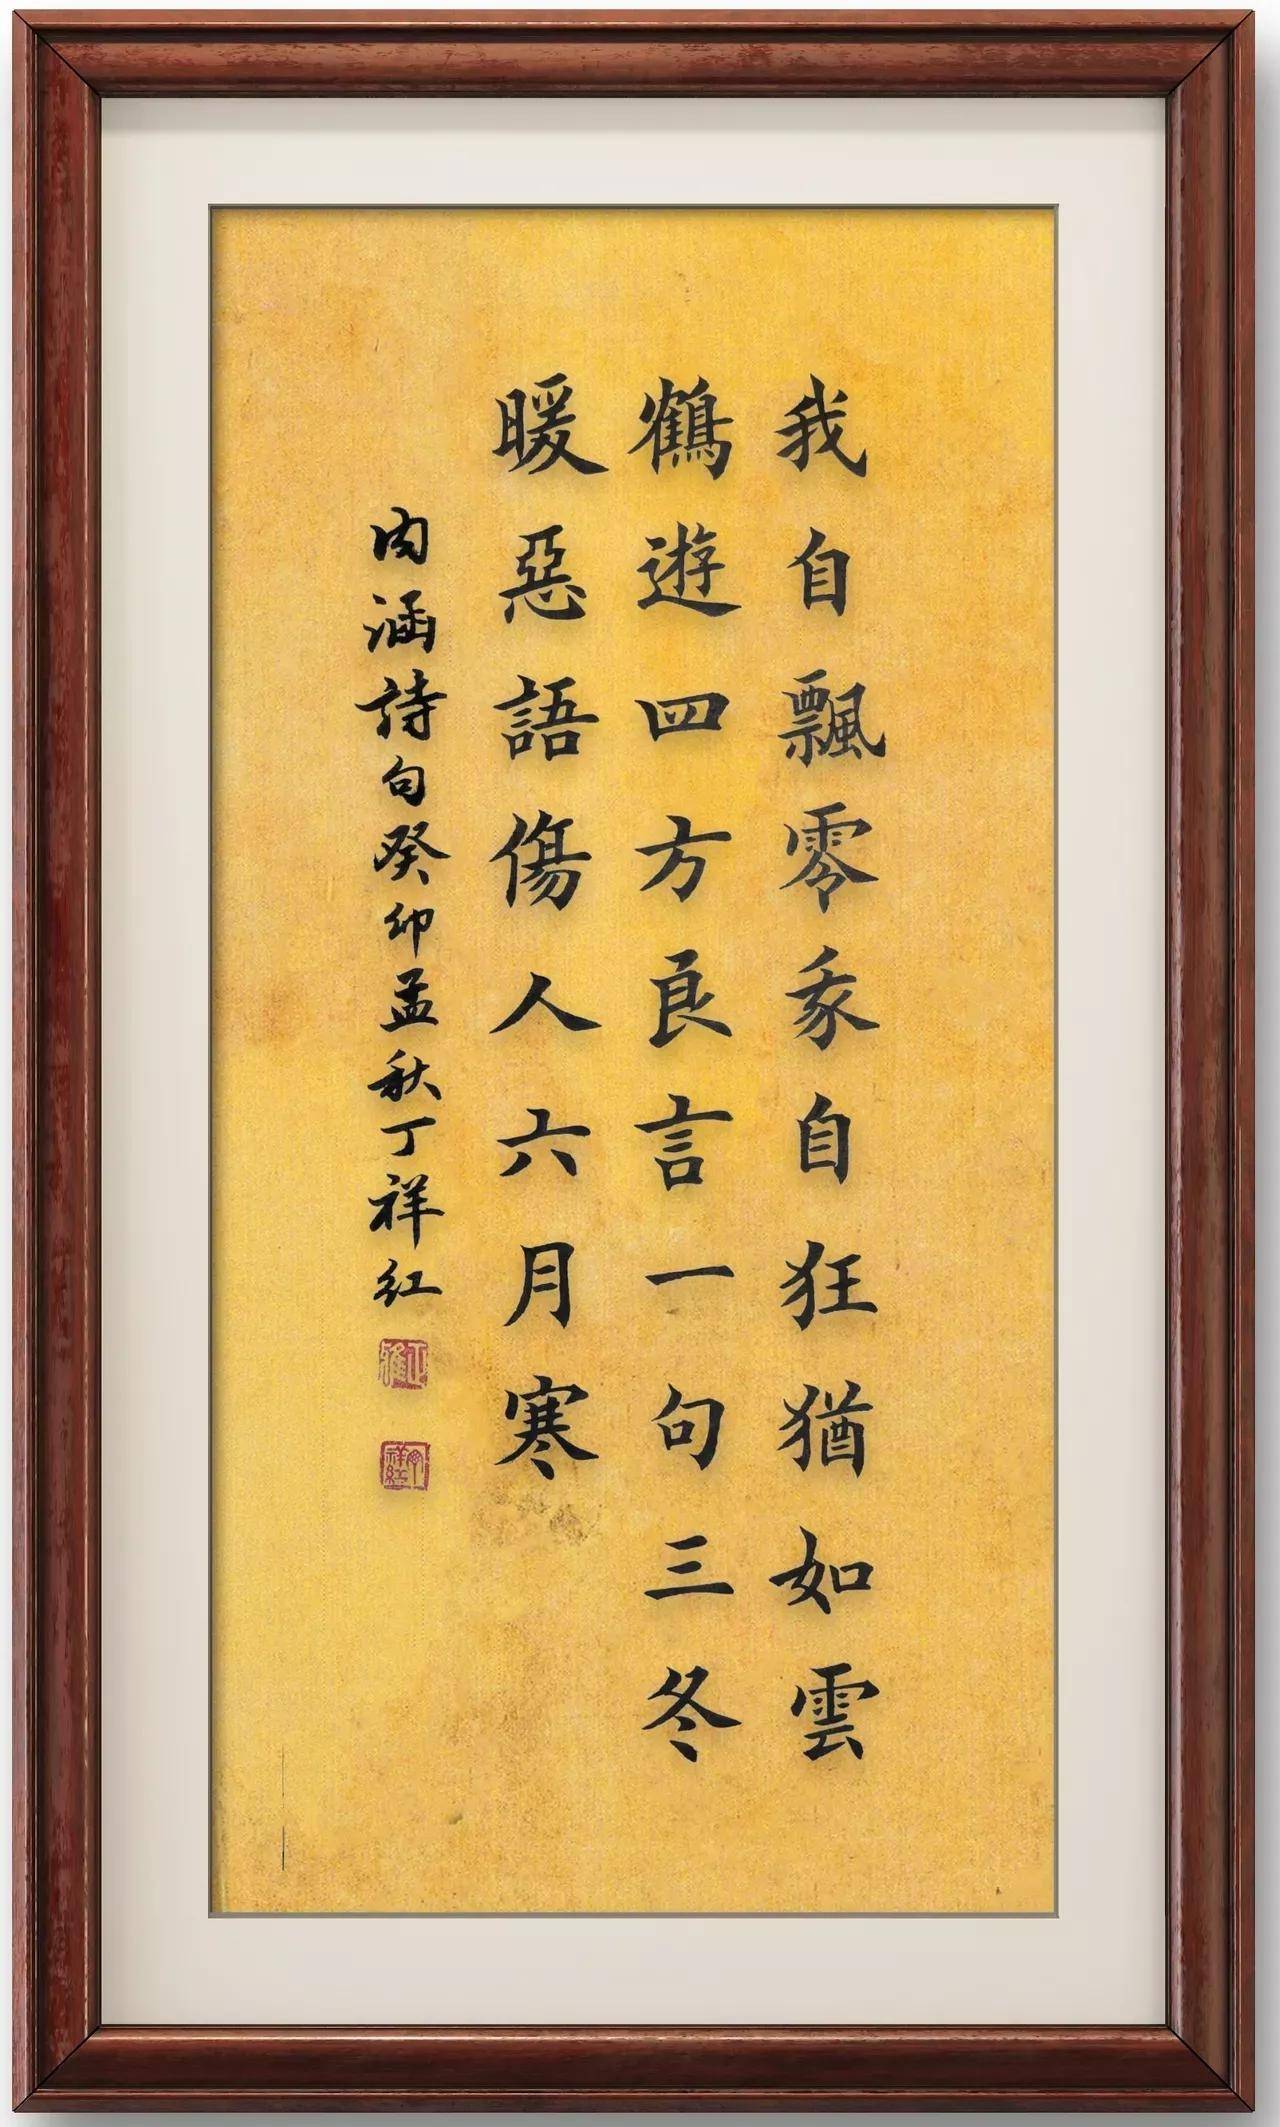 我自飄零我自狂猶如雲
鶴遊四方良言一句三冬
暖惡語傷人六月寒
内涵詩句癸卯孟秋丁祥红